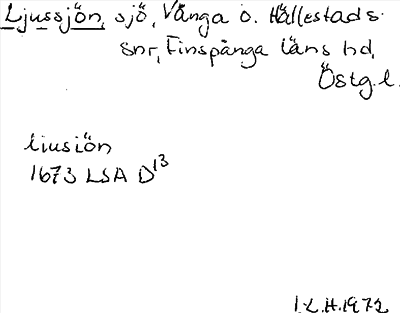 Ljussjön, sjö, Vånga o. Hällestads
snr, Finspånga läns hd,
Östg.l.
liusiön
1673 LSA D13
I.L.H.1972